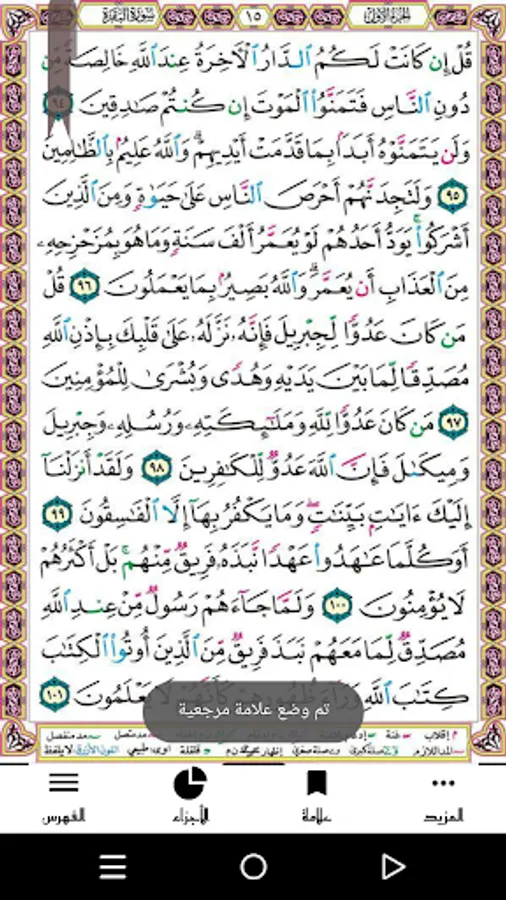 الجزء الأول
١٥
سورة البقرة
قُلْ إِن كَانَتْ لَكُمُ ٱلدَّارُ ٱلْأَخِرَةُ عِندَ ٱللَّهِ خَالِصَةً مِّن
دُونِ ٱلنَّاسِ فَتَمَنَّوُا۟ ٱلْمَوْتَ إِن كُنتُمْ صَٰدِقِينَ ٩٤
وَلَن يَتَمَنَّوْهُ أَبَدًۢا بِمَا قَدَّمَتْ أَيْدِيهِمْ ۗ وَٱللَّهُ عَلِيمٌۢ بِٱلظَّٰلِمِينَ
٩٥ وَلَتَجِدَنَّهُمْ أَحْرَصَ ٱلنَّاسِ عَلَىٰ حَيَوٰةٍ وَمِنَ ٱلَّذِينَ
أَشْرَكُوا۟ ۚ يَوَدُّ أَحَدُهُمْ لَوْ يُعَمَّرُ أَلْفَ سَنَةٍ وَمَا هُوَ بِمُزَحْزِحِهِۦ
مِنَ ٱلْعَذَابِ أَن يُعَمَّرَ ۗ وَٱللَّهُ بَصِيرٌۢ بِمَا يَعْمَلُونَ ٩٦ قُلْ
مَن كَانَ عَدُوًّا لِّجِبْرِيلَ فَإِنَّهُۥ نَزَّلَهُۥ عَلَىٰ قَلْبِكَ بِإِذْنِ ٱللَّهِ
مُصَدِّقًا لِّمَا بَيْنَ يَدَيْهِ وَهُدًى وَبُشْرَىٰ لِلْمُؤْمِنِينَ
٩٧ مَن كَانَ عَدُوًّا لِّلَّهِ وَمَلَٰٓئِكَتِهِۦ وَرُسُلِهِۦ وَجِبْرِيلَ
وَمِيكَىٰلَ فَإِنَّ ٱللَّهَ عَدُوٌّ لِّلْكَٰفِرِينَ ٩٨ وَلَقَدْ أَنزَلْنَآ
إِلَيْكَ ءَايَٰتٍۭ بَيِّنَٰتٍ ۖ وَمَا يَكْفُرُ بِهَآ إِلَّا ٱلْفَٰسِقُونَ ٩٩
أَوَكُلَّمَا عَٰهَدُوا۟ عَهْدًا نَّبَذَهُۥ فَرِيقٌ مِّنْهُم ۚ بَلْ أَكْثَرُهُمْ
لَا يُؤْمِنُونَ ١٠٠ وَلَمَّا جَآءَهُمْ رَسُولٌ مِّنْ عِندِ ٱللَّهِ
مُصَدِّقٌ لِّمَا مَعَهُمْ نَبَذَ فَرِيقٌ مِّنَ ٱلَّذِينَ أُوتُوا۟ ٱلْكِتَٰبَ
كِتَٰبَ ٱللَّهِ وَرَآءَ ظُهُورِهِمْ كَأَنَّهُمْ لَا يَعْلَمُونَ ١٠١
تم وضع علامة مرجعية
المزيد
علامة
الأجزاء
الفهرس